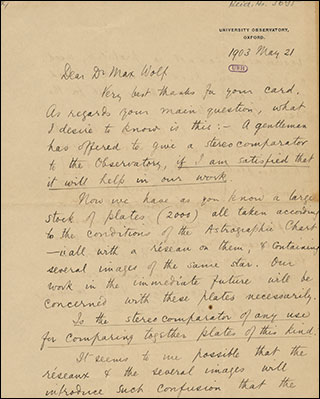 UNIVERSITY OBSERVATORY,
OXFORD.
1903 May 21
Dear Dr Max Wolf
Very best thanks for your card.
As regards your main question, what
I desire to know is this:- A gentleman
has offered to give a stereocomparator
to the Observatory, if I am satisfied that
it will help in our work
Now we have as you know a large
stock of plates (2000) all taken according
to the conditions of the Astrographic Chart
— all with a réseau on them, & containing
several images of the same star. Our
work in the immediate future will be
concerned with these plates necessarily.
Is the stereocomparator of any use
for comparing together plates of this kind.
It seems to me possible that the
réseaux & the several images will
introduce such confusion that the